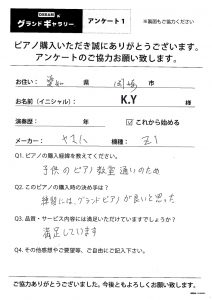 OSAKA の
グランドギャラリー アンケート1 ※裏面もご協力ください
ピアノ購入いただき誠にありがとうございます。
アンケートのご協力お願い致します。
お住い: 愛知 県 岡崎 市
お名前(イニシャル): K.Y 様
演奏歴: 年 ☑ これから始める
メーカー: ヤマハ 機種: Z1
Q1. ピアノの購入経緯を教えてください。
子供のピアノ教室通いのため
Q2. このピアノの購入時の決め手は?
練習には、グランドピアノが良いと思った
Q3. 品質・サービス内容には満足いただけていますでしょうか?
満足しています
Q4. その他感想やご要望等、ご自由にご記入下さい。
ご協力ありがとうございました。今後ともよろしくお願い致します。